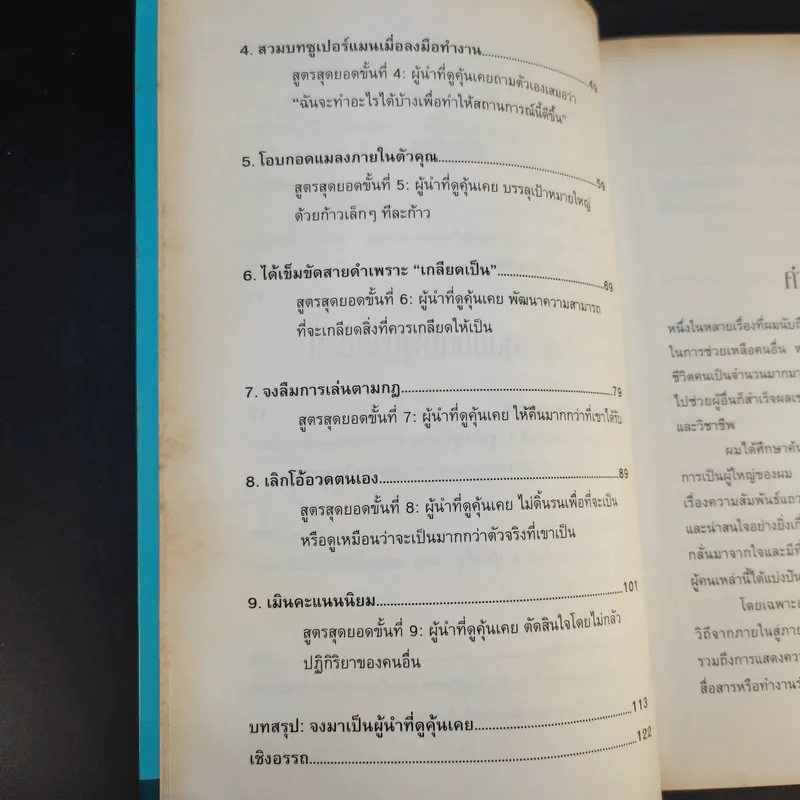 4. สวมบทซูเปอร์แมนเมื่อลงมือทำงาน.....................49
สูตรสุดยอดขั้นที่ 4: ผู้นำที่ดูคุ้นเคยถามตัวเองเสมอว่า
“ฉันจะทำอะไรได้บ้างเพื่อทำให้สถานการณ์นี้ดีขึ้น”
5. โอบกอดแมลงภายในตัวคุณ.....................59
สูตรสุดยอดขั้นที่ 5: ผู้นำที่ดูคุ้นเคย บรรลุเป้าหมายใหญ่
ด้วยก้าวเล็กๆ ทีละก้าว
6. ได้เข็มขัดสายดำเพราะ “เกลียดเป็น”.....................69
สูตรสุดยอดขั้นที่ 6: ผู้นำที่ดูคุ้นเคย พัฒนาความสามารถ
ที่จะเกลียดสิ่งที่ควรเกลียดให้เป็น
7. จงลืมการเล่นตามกฎ.....................79
สูตรสุดยอดขั้นที่ 7: ผู้นำที่ดูคุ้นเคย ให้คืนมากกว่าที่เขาได้รับ
8. เลิกโอ้อวดตนเอง.....................89
สูตรสุดยอดขั้นที่ 8: ผู้นำที่ดูคุ้นเคย ไม่ดิ้นรนเพื่อที่จะเป็น
หรือดูเหมือนว่าจะเป็นมากกว่าตัวจริงที่เขาเป็น
9. เมินคะแนนนิยม.....................101
สูตรสุดยอดขั้นที่ 9: ผู้นำที่ดูคุ้นเคย ตัดสินใจโดยไม่กลัว
ปฏิกิริยาของคนอื่น
บทสรุป: จงมาเป็นผู้นำที่ดูคุ้นเคย.....................113
เชิงอรรถ.....................122
หนึ่งในหลายเรื่องที่ผมนับถื
ในการช่วยเหลือคนอื่น
ชีวิตคนเป็นจำนวนมากมา
ไปช่วยผู้อื่นก็สำเร็จผลเช
และวิชาชีพ
ผมได้ศึกษาค้น
การเป็นผู้ใหญ่ของผม
เรื่องความสัมพันธ์แถว
และน่าสนใจอย่างยิ่งเกี่
กลั่นมาจากใจและมีที่
ผู้คนเหล่านี้ได้แบ่งปัน
โดยเฉพาะอ
วิถีจากภายในสู่ภาย
รวมถึงการแสดงความ
สื่อสารหรือทำงานร่